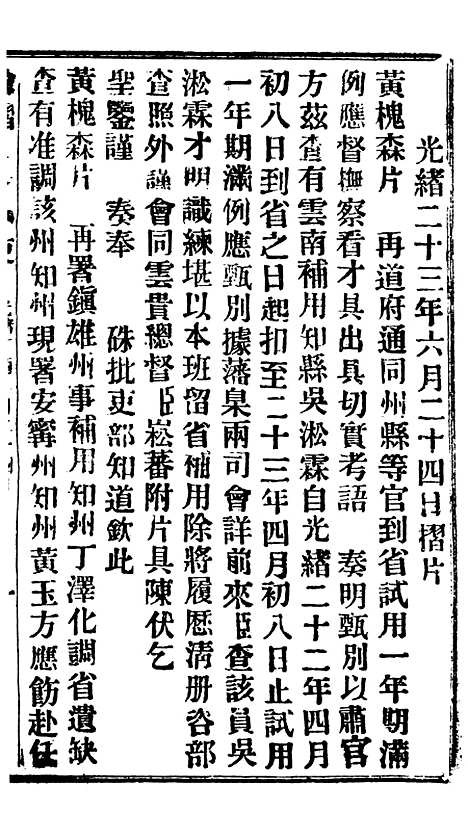 光緒二十三年六月二十四日摺片
黃槐森片　再道府通同州縣等官到省試用一年期滿
例應督撫察看才具出具切實考語　奏明甄別以肅官
方茲查有雲南補用知縣吳淞霖自光緒二十二年四月
初八日到省之日起扣至二十三年四月初八日止試用
一年期滿例應甄別據藩臬兩司會詳前來臣查該員吳
淞霖才明識練堪以本班留省補用除將履歷清册咨部
查照外謹會同雲貴總督臣崧蕃附片具陳伏乞
聖鑒謹　奏奉　硃批吏部知道欽此
黃槐森片　再署鎭雄州事補用知州丁澤化調省遺缺
查有准調該州知州現署安寧州知州黃玉方應飭赴任